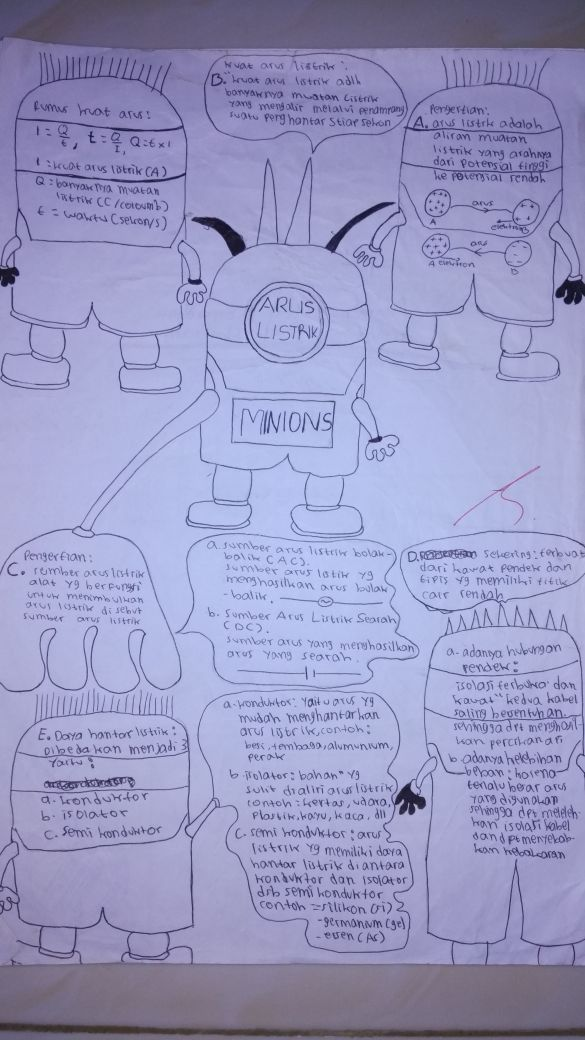 Rumus kuat arus:
I = Q/t, t = Q/I, Q = t x I
I : kuat arus listrik (A)
Q = banyaknya muatan
listrik (C/coloumb)
t = waktu (sekon/s)
kuat arus listrik:
B. "kuat arus listrik adlh
banyaknya muatan listrik
yang mengalir melalui penampang
suatu penghantar stiap sekon
Pengertian:
A. arus listrik adalah
aliran muatan
listrik yang arahnya
dari potensial tinggi
ke potensial rendah
arus
A
elektron B
arus
A elektron
D
ARUS
LISTRIK
MINIONS
Pengertian:
C. sumber arus listrik
alat yg berfungsi
untuk menimbulkan
arus listrik disebut
sumber arus listrik
a. sumber arus listrik bolak-
balik (AC).
sumber arus listik yg
menghasilkan arus bolak
-balik.
b. Sumber Arus Listrik Searah
(DC).
sumber arus yang menghasilkan
arus yang searah.
D. sekering: terbuat
dari kawat pendek dan
tipis yg memiliki titik
cair rendah
a. adanya hubungan
pendek:
isolasi terbuka dan
kawat" kedua kabel
saling bersentuhan
sehingga dpt menghasil
kan percikan api
b. adanya kelebihan
beban: karena
terlalu besar arus
yang digunakan
sehingga dpt meleleh
kan isolasi kabel
dan dpt menyebab-
kan kebakaran
E. Daya hantar listrik:
Dibedakan menjadi 3
yaitu:
a. konduktor
b. isolator
c. semi konduktor
a. konduktor: yaitu arus yg
mudah menghantarkan
arus listrik, contoh:
besi, tembaga, alumunium,
perak
b. isolator: bahan" yg
sulit dialiri arus listrik
contoh: kertas, udara,
plastik, kayu, kaca, dll
c. semi konduktor: arus
listrik yg memiliki daya
hantar listrik diantara
konduktor dan isolator
dsb semi konduktor
contoh = silikon (si)
- germanium (ge)
- (As)